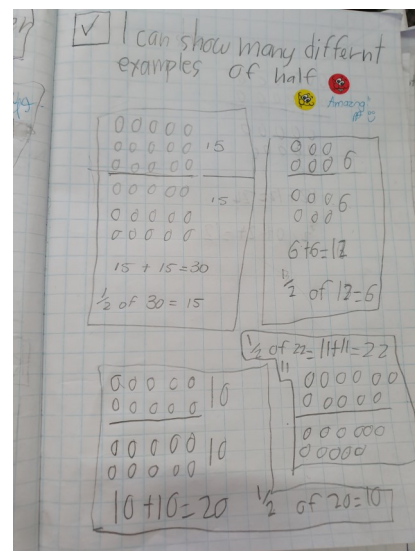 I can show many differnt
examples of half
Amazing!
0 0 0 0 0
0 0 0 0 0 15
0 0 0 0 0
0 0 0 0 0 15
0 0 0 0 0
0 0 0 0 0
15 + 15 = 30
1/2 of 30 = 15
0 0 0
0 0 0 6
0 0 0 6
0 0 0
6+6=12
1/2 of 12=6
1/2 of 22=11+11=22
11
0 0 0 0 0 0
0 0 0 0 0
0 0 0 0 0 0
0 0 0 0 0
0 0 0 0 0 10
0 0 0 0 0
0 0 0 0 0 10
0 0 0 0 0
10+10=20 1/2 of 20=10